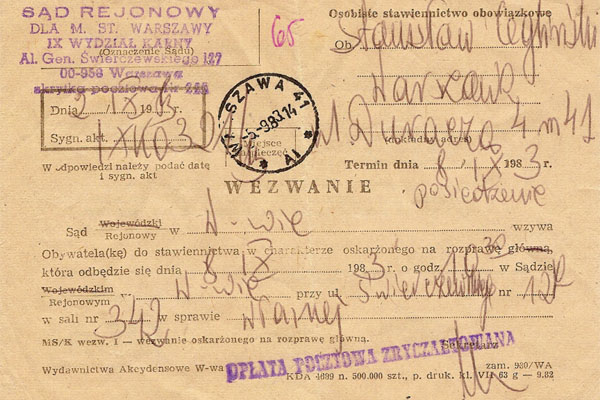 SĄD REJONOWY
DLA M. ST. WARSZAWY
IX WYDZIAŁ KARNY
(Oznaczenie Sądu)
Al. Gen. Świerczewskiego 127
00-958 Warszawa
skrytka pocztowa Nr
65
Osobiste stawiennictwo obowiązkowe
Ob. Stanisław
Warszawa
4 m 41
(dokładny adres)
Dnia 2 IX 198
Sygn. akt IX KO
WARSZAWA 41
-5-9.83 14
A1
Miejsce
W odpowiedzi należy podać datę
i sygn. akt
Termin dnia 8 IX 1983 r.
WEZWANIE
posiedzenie
Sąd Wojewódzki
Rejonowy W-wie wzywa
Obywatela(kę) do stawiennictwa w charakterze oskarżonego na rozprawę główną,
która odbędzie się dnia 8 IX 1983 r. o godz. w Sądzie
Wojewódzkim
Rejonowym W-wie przy ul. Świerczewskiego nr 127
w sali nr 342 w sprawie własnej
MS/K wezw. 1 — wezwanie oskarżonego na rozprawę główną.
Sekretarz
OPŁATA POCZTOWA ZRYCZAŁTOWANA
Wydawnictwa Akcydensowe W-wa
zam. 980/WA
KDA 4699 n. 500.000 szt., p. druk. kl. VII 63 g — 9.82